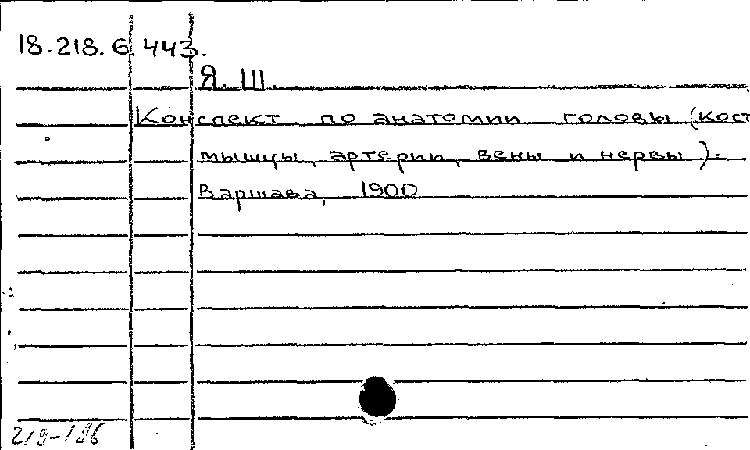 18.218.6.443.
Я. Ш.
Конспект по анатомии головы (кост
мышцы, артерии, вены и нервы).
Варшава, 1900
218-186